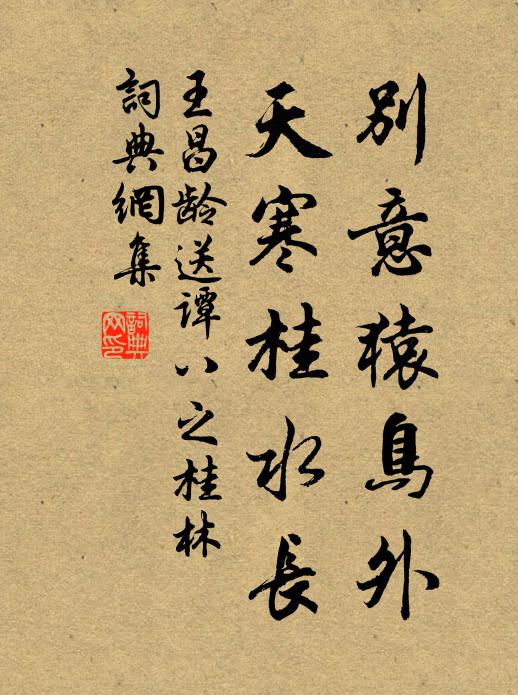 別意猿鳥外
天寒桂水長
王昌龄送譚八之桂林
詞典網集
詞典
网印